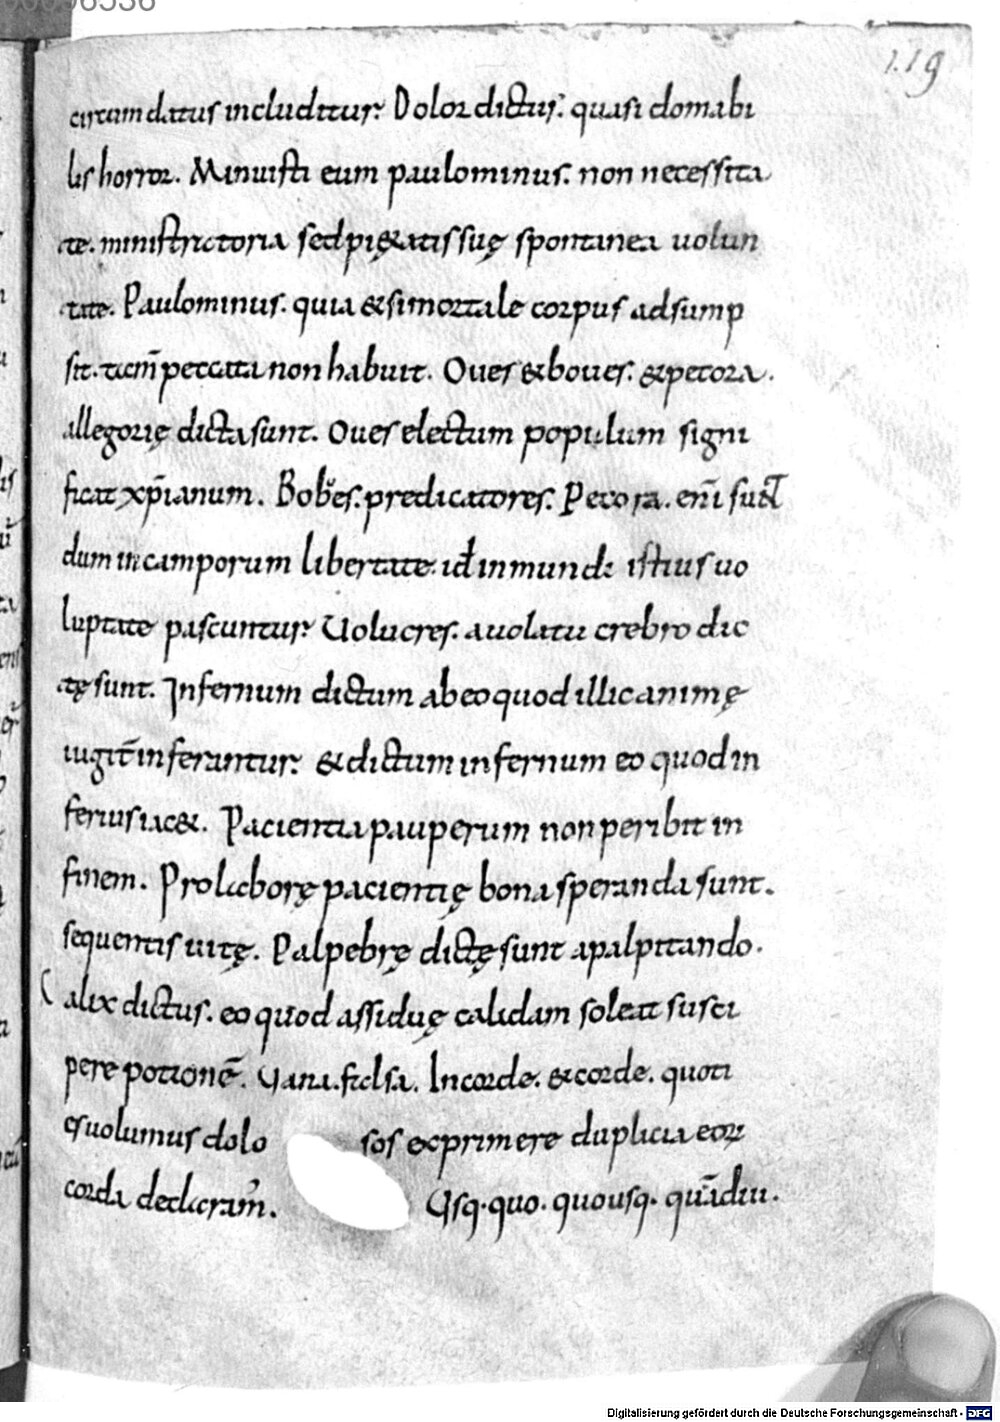 119
circumdatus includitur. Dolor dictus. quasi domabi
lis horror. Minuisti eum paulominus. non necessita
te. ministratoria sed pię&atis suę spontanea uolun
tate. Paulominus. quia & si mortale corpus adsump
sit. tam̄ peccata non habuit. Oues & boues. & pecora.
allegorię dicta sunt. Oues electum populum signi
ficat xp̄ianum. Boues. predicatores. Pecora. eni̅
dum in camporum libertate. id̄ in mundi istius uo
luptate pascuntur. Uolucres. a uolatu crebro dic
tę sunt. Infernum dictum ab eo quod illic animę
iugit̄ inferantur. & dictum infernum eo quod in
ferius iac&. Pacientia pauperum non peribit in
finem. Pro laborę pacientię bona speranda sunt.
sequentis uitę. Palpebrę dictę sunt a palpitando.
Calix dictus. eo quod assiduę calidam soleat susci
pere potionē. Uana. falsa. In corde. & corde. quoti
esuolumus dolo sos exprimere duplicia eoꝝ
corda declaram̅. Usq. quo. quousq. quādiu.
Digitalisierung gefördert durch die Deutsche Forschungsgemeinschaft - DFG